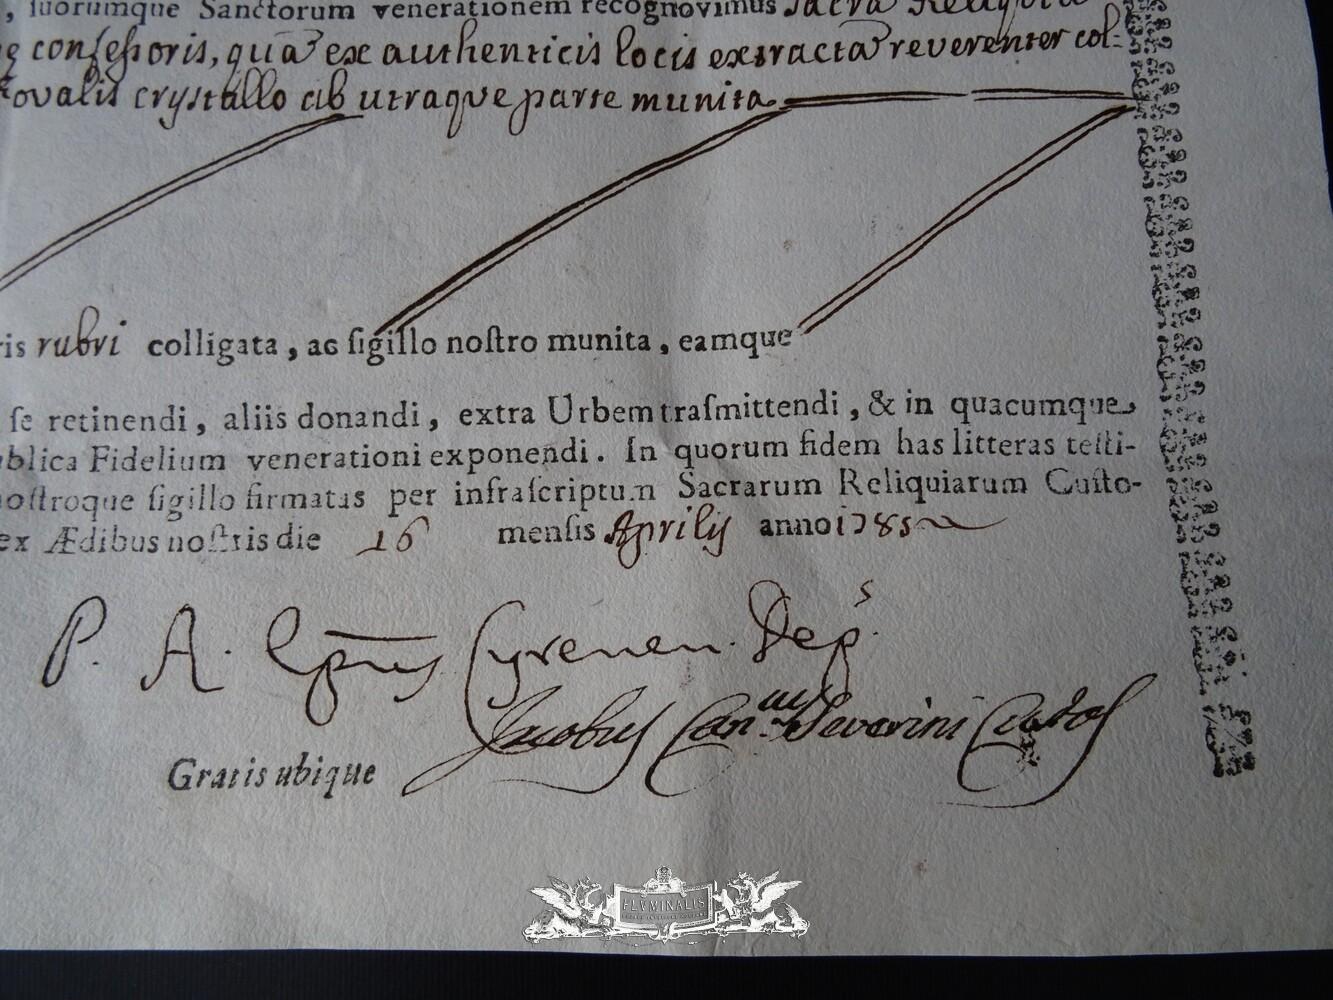 , suorumque Sanctorum venerationem recognovimus Sacra Reliquia
confessoris, quã ex authenticis locis extractã reverenter col-
ovalis crystallo ab utraque parte munita
ris rubri colligata, ac sigillo nostro munita, eamque
se retinendi, aliis donandi, extra Urbem trasmittendi, & in quacumque
blica Fidelium venerationi exponendi. In quorum fidem has litteras testi-
ostroque sigillo firmatas per infrascriptum Sacrarum Reliquiarum Custo-
ex Ædibus nostris die 16 mensis Aprilis anno 1785
P. A. Epus Cyrenen. Dep.s
Jacobus Can.cus Severini Custos
Gratis ubique
FLVMINALIS